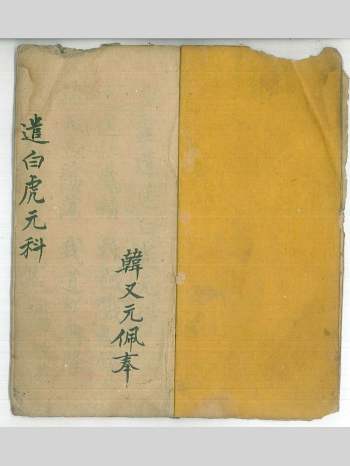 韓又元佩奉
遣白虎元科